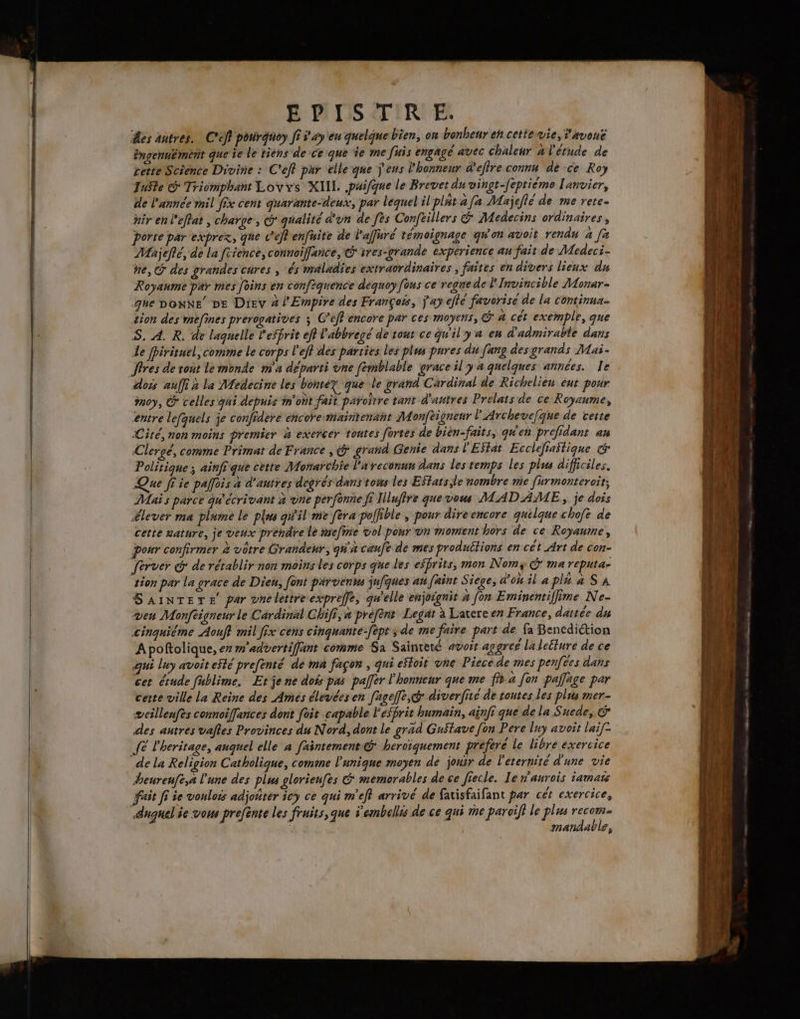 EPISTRE.
des autres. C'est pourquoy si i'ay eu quelque bien, ou bonheur en cette vie, i'avouë
ingenuëment que ie le tiens de ce que ie me suis engagé avec chaleur à l'étude de
cette Science Divine : C'est par elle que j'eus l'honneur d'estre connu de ce Roy
Iuste & Triomphant LOVYS XIII. puisque le Brevet du vingt-septiéme Ianvier,
de l'année mil six cent quarante-deux, par lequel il plût à sa Majesté de me rete-
nir en l'estat, charge, & qualité d'un de ses Conseillers & Medecins ordinaires,
porte par exprez, que c'est ensuite de l'assuré témoignage qu'on avoit rendu à sa
Majesté, de la science, connoissance, & tres-grande experience au fait de Medeci-
ne, & des grandes cures, és maladies extraordinaires, faites en divers lieux du
Royaume par mes soins en consequence dequoy sous ce regne de l'Invincible Monar-
que DONNE' DE DIEV à l'Empire des François, j'ay esté favorisé de la continua-
tion des mesmes prerogatives ; C'est encore par ces moyens, & à cét exemple, que
S. A. R. de laquelle l'esprit est l'abbregé de tout ce qu'il y a eu d'admirable dans
le spirituel, comme le corps l'est des parties les plus pures du sang des grands Mai-
stres de tout le monde m'a départi une semblable grace il y a quelques années. Ie
dois aussi à la Medecine les bontez que le grand Cardinal de Richelieu eut pour
moy, & celles qui depuis m'ont fait paroître tant d'autres Prelats de ce Royaume,
entre lesquels je considere encore maintenant Monseigneur l'Archevesque de cette
Cité, non moins premier à exercer toutes sortes de bien-faits, qu'en presidant au
Clergé, comme Primat de France, & grand Genie dans l'Estat Ecclesiastique &
Politique ; ainsi que cette Monarchie l'a reconnu dans les temps les plus difficiles.
Que si ie passois à d'autres degrés dans tous les Estats, le nombre me surmonteroit;
Mais parce qu'écrivant à une personne si Illustre que vous MADAME, je dois
élever ma plume le plus qu'il me sera possible, pour dire encore quelque chose de
cette nature, je veux prendre le mesme vol pour un moment hors de ce Royaume,
pour confirmer à vôtre Grandeur, qu'à cause de mes productions en cét Art de con-
server & de rétablir non moins les corps que les esprits, mon Nom, & ma reputa-
tion par la grace de Dieu, sont parvenus jusques au saint Siege, d'où il a plû à SA
SAINTETE' par une lettre expresse, qu'elle enjoignit à son Eminentissime Ne-
veu Monseigneur le Cardinal Chisi, à present Legat à Latere en France, dattée du
cinquiéme Aoust mil six cens cinquante-sept ; de me faire part de sa Benediction
Apostolique, en m'advertissant comme Sa Sainteté avoit aggreé la lecture de ce
qui luy avoit esté presenté de ma façon, qui estoit une Piece de mes pensées dans
cet étude sublime. Et je ne dois pas passer l'honneur que me fit à son passage par
cette ville la Reine des Ames élevées en sagesse, & diversité de toutes les plus mer-
veilleuses connoissances dont soit capable l'esprit humain, ainsi que de la Suede, &
des autres vastes Provinces du Nord, dont le grad Gustave son Pere luy avoit lais-
sé l'heritage, auquel elle a saintement & heroïquement preferé le libre exercice
de la Religion Catholique, comme l'unique moyen de jouir de l'eternité d'une vie
heureuse, à l'une des plus glorieuses & memorables de ce siecle. Ie n'aurois iamais
fait si ie voulois adjoûter icy ce qui m'est arrivé de satisfaisant par cét exercice,
duquel ie vous presente les fruits, que i'embellis de ce qui me paroist le plus recom-
mandable,